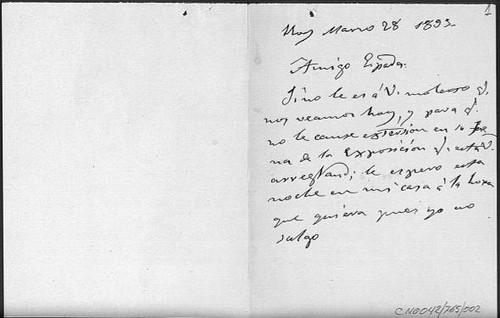 1
Hoy Marzo 28 1893.
Amigo Espada:
Si no le es á V. molesto q.
nos veamos hoy, y para q.
no le cause estorsión en la
na de la Exposición q. está V.
arreglando; le espero esta
noche en mi casa á la hora
que quiera pues yo no
salgo
CNG042/765/002